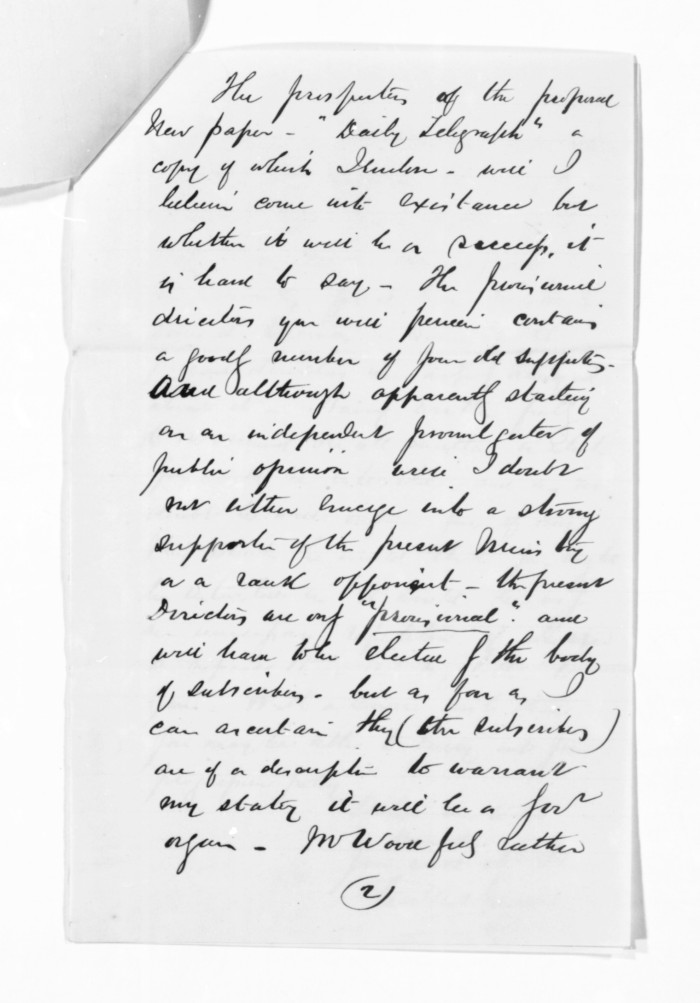 The prospectus of the proposed
New paper - "Daily Telegraph" a
copy of which I enclose - will I
believe come into existance but
whether it will be a success, it
is hard to say - The provisional
directors you will perceive contains
a goodly number of your old supporters -
and although apparently starting
as an independent promulgator of
public opinion will I doubt
not either emerge into a strong
supporter of the present Ministry
or a rank opponent - the present
Directors are only "provisional". and
will have to be elected by the body
of subscribers - but as far as I
can ascertain they (the subscribers)
are of a description to warrant
my stating it will be a Govt
organ - Mr Wood feels rather
(2)